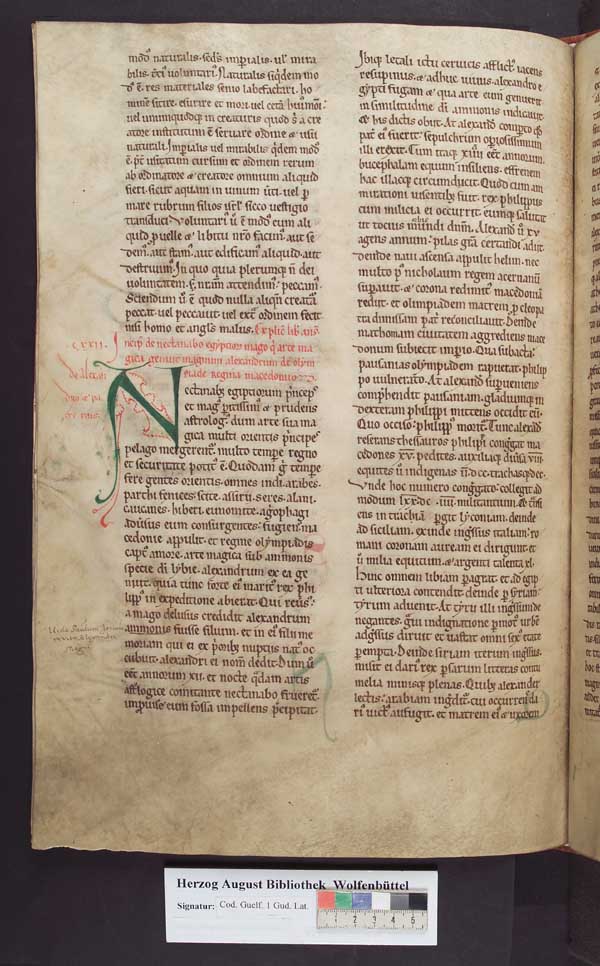 mod᷒ naturalis. sed᷒s imp̱ialis. ul᷒ mira
bilis. t̄ci᷒ voluntari᷒. Naturalis siq̄dem mo
d᷒ ē. res materiales senio labefactari. ho
minē sitire. esurire et mori. vel cetā hui᷒moī.
vel unumqu̇odq̄ in creaturis quod s̄ a cre
atore institutum ē seruare ordinē & usū
naturalī. Imp̱ialis vel mirabilis q̄dem mod᷒
ē. p̄t usitatum cursum et ordinem rerum
ab ordinatore & creatore omnium aliquid
fieri. sicut aquam in uinum ūti. vel p̱
mare rubrum filios isrl᷒ sicco uestigio
transduci. Voluntari᷒ ū ē mod᷒ cum ali
quid puelle & libitu nr̄o facim᷒. aut se
dem᷒. aut stam᷒. aut edificam᷒ aliquid. aut
destruim᷒. In quo quia plerumq̄ n̄ dei
voluntatem attendim᷒. peccam᷒.
Sciendum ū ē quod nulla aliq̄n creatā
peccat. vel peccauit. vel ex̄t ordinem fecit
nisi homo et angl᷒s malus. Explic̄ lib̄
CXXII. Incip̄ de nectanabo egyption mago q̄ arte ma
gica genuit magnum alexandrum de olym
de alexan piade regina macedonum
dro
Nectanab᷒ egiptiorum p̄ncep᷒s
et mag᷒ p̱itissim᷒ & prudens
astrolog᷒. dum arte sua ma
gica multi orientis p̄ncipe᷒s
pelago mergerent᷒. multo temp̱e regno
et securitate potit᷒ ē. Quodam ḡ temp̱e
fere gentes orientis. omnes indi. arabes.
parthi. fenices. sette. assirii. seres. alani.
caucones. hiberi. eunomite. agriophagi
aduersus eum consurgentes: fugien᷒ ma
cedonie appulit. et regine olympiadis
capt᷒ amore. arte magica sub ammonis
specie di᷒ lybie. alexandrum ex ea ge
nuit. quia tunc forte ei᷒ marit᷒ rex phi
lipp᷒ in expeditione abierat. Qui reus᷒us.
a mago delusus credidit alexandrum
ammonis fuisse filium. et in ei᷒ filii me
moriam qui ei ex p̱orib᷒ nuptiis nat᷒ oc
cubuit. alexandri ei nom̄ dedit. Dum ū
eēt annorum XII. et nocte q̄dam artis
astl᷒ogice comitante nectanabo frueret᷒:
imp̄uise eum fossa impellens p̄cipitat.
Ibiq̄ letali ictu ceruicis afflict᷒. iacens
resupinus. & adhuc uiuus. alexandro e
gypti fugam & qua arte eum genuerit
in similitudine di᷒ ammonis indicauit.
& his dictis obiit. At alexand᷒ comp̱to q̄d
pat᷒ ei᷒ fuerit: sepulchrum op̱osissimum
illi erexit. Cum itaq̄ XIIII eēt annorum.
bucephalam equum insiliens. effrenem
hac illacq̄ circumducit. Quod cum am
mirationi uisentib᷒ fuit. rex philippus
cum milicia ei occurrit. eumq̄ salutat
ut tocius mundi dn̄m. Alexand᷒ ū XV
agens annum: pilas grā certandi adiit.
deinde naui ascensa appulit helim. nec
multo p᷒ nicholaum regem acernanū
sup̱auit. & corona redimit᷒ macedoniā
rediit. et olimpiadem matrem p̱ cleopa
tra dimissam pat᷒ reconciliauit. Deinde
mathomam ciuitatem aggrediens mace
donum subiecit imp̱io. Qua subacta:
pausanias olympiadem rapuerat. philip
po uulnerato. At alexand᷒ sup̱ueniens
comp̱hendit pausaniam. gladiumq̄ in
dexteram philippi mittens occidit eū.
Quo occiso: philipp᷒ morit᷒. Tunc alexand᷒
reserans thesauros philippi. congregat ma
cedones XV. pedites. auxiliaq̄ diuisa VIII.
equites ū indigenas
Vnde hoc numero cong̱gato: collegit ad
modum militantium.
ens in trachia pergit lyconiam. deinde
ad siciliam. exinde ing̱ssus italiam: ro
mani coronam auream ei dirigunt. et
ū milia equitum. & argenti talenta
hinc omnem libiam p̱agrat. et ad egip
ti ulteriora contendit. deinde p̱ syriam.
tyrum aduenit. At tyrii illi ing̱ssum de
negantes. graui indignatione p̄mot᷒ urbē
adg̱ssus diruit et uastat omni sexu etate
p̱empta. Deinde siriam iterum ing̱ssus.
misit ei dari᷒ rex p̱sarum litteras contu
melia minisq̄ plenas. Quib᷒ alexander
lectis: arabiam ing̱dit᷒. cui occurren᷒ da
ri᷒ uict᷒ aufugit. et matrem ei᷒ & uxorem
Herzog August Bibliothek Wolfenbüttel
Signatur: Cod. Guelf. 1 Gud. Lat.
1 2 3 4 5